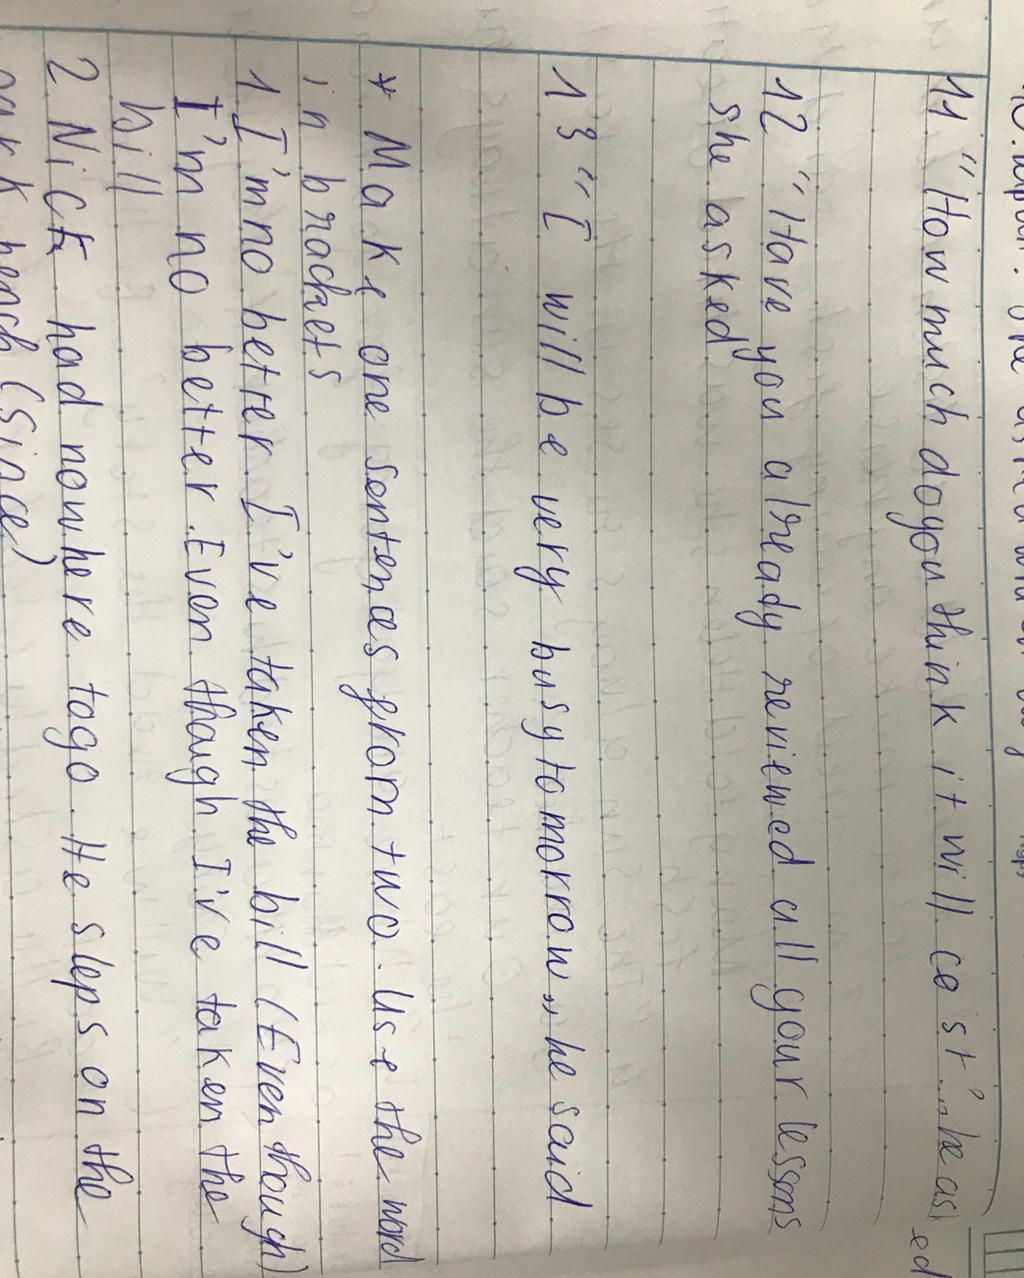 she asked what
11 "How much do you think it will cost" he asked
12 "Have you already reviewed all your lessons
she asked
13 "I will be very busy tomorrow" he said
* Make one sentences from two. Use the word
in brackets
1 I'm no better I've taken the bill (Even though)
I'm no better. Even though I've taken the
bill
2 Nick had nowhere to go. He sleps on the
park bench (since)